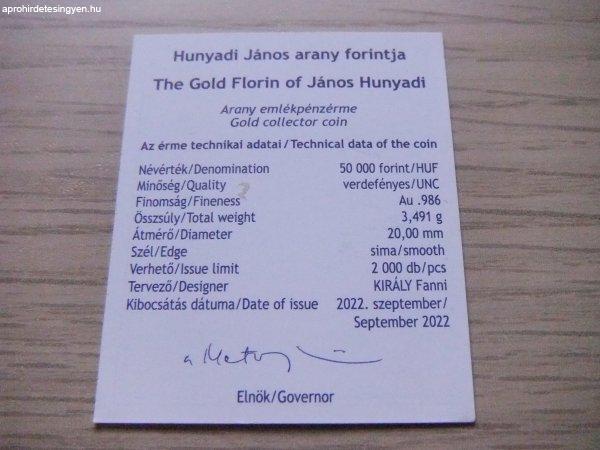 aprohirdetesingyen.hu
Hunyadi János arany forintja
The Gold Florin of János Hunyadi
Arany emlékpénzérme
Gold collector coin
Az érme technikai adatai/Technical data of the coin
Névérték/Denomination 50 000 forint/HUF
Minőség/Quality verdefényes/UNC
Finomság/Fineness Au .986
Összsúly/Total weight 3,491 g
Átmérő/Diameter 20,00 mm
Szél/Edge sima/smooth
Verhető/Issue limit 2 000 db/pcs
Tervező/Designer KIRÁLY Fanni
Kibocsátás dátuma/Date of issue 2022. szeptember/
September 2022
Elnök/Governor